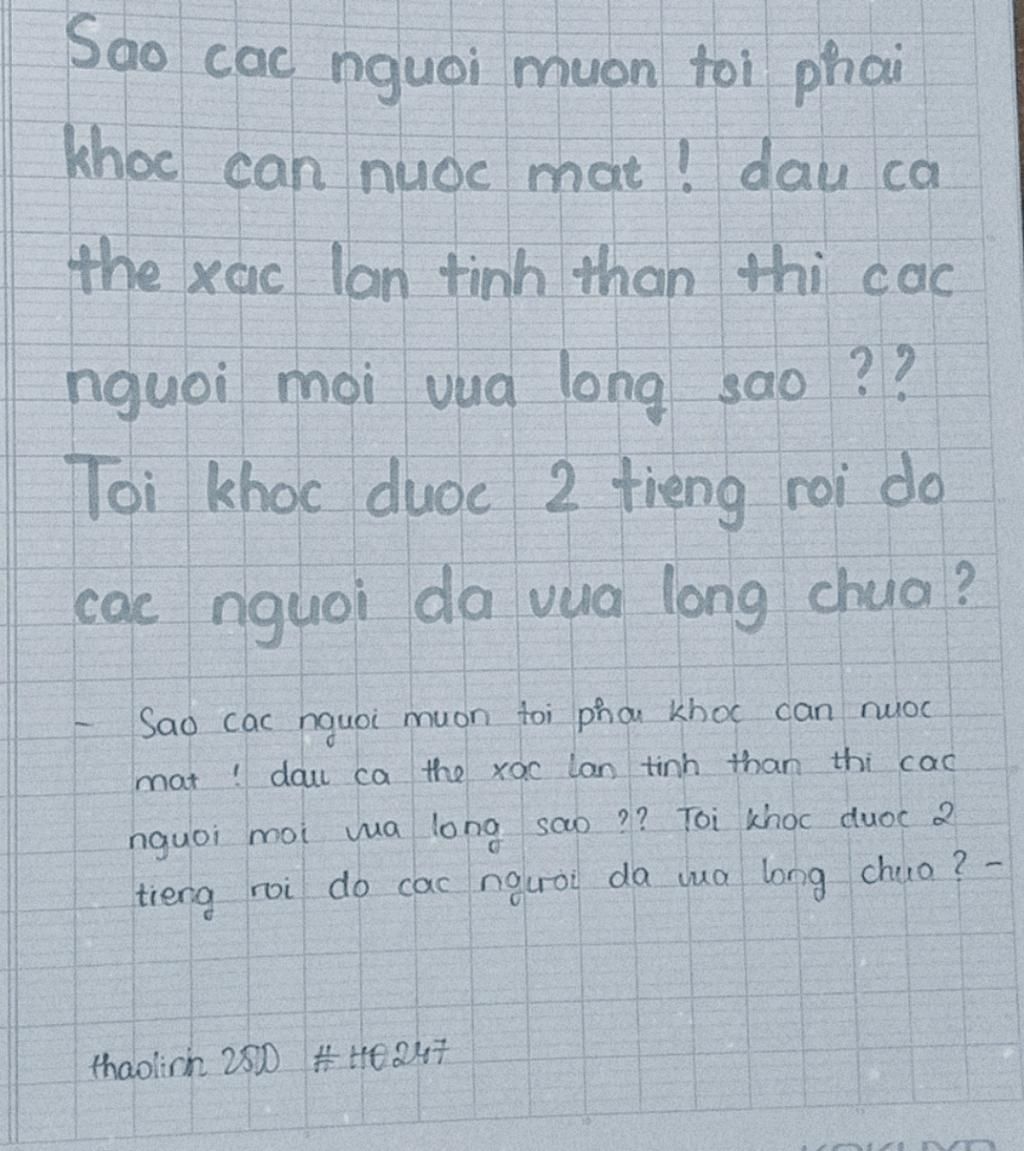 Sao cac nguoi muon toi phai
khoc can nuoc mat ! dau ca
the xac lan tinh than thi cac
nguoi moi vua long sao ??
Toi khoc duoc 2 tieng roi do
cac nguoi da vua long chua ?
- Sao cac nguoi muon toi phai khoc can nuoc
mat ! dau ca the xac lan tinh than thi cac
nguoi moi vua long sao ?? Toi khoc duoc 2
tieng roi do cac nguoi da vua long chua ? -
thaolinh 25D #HE247